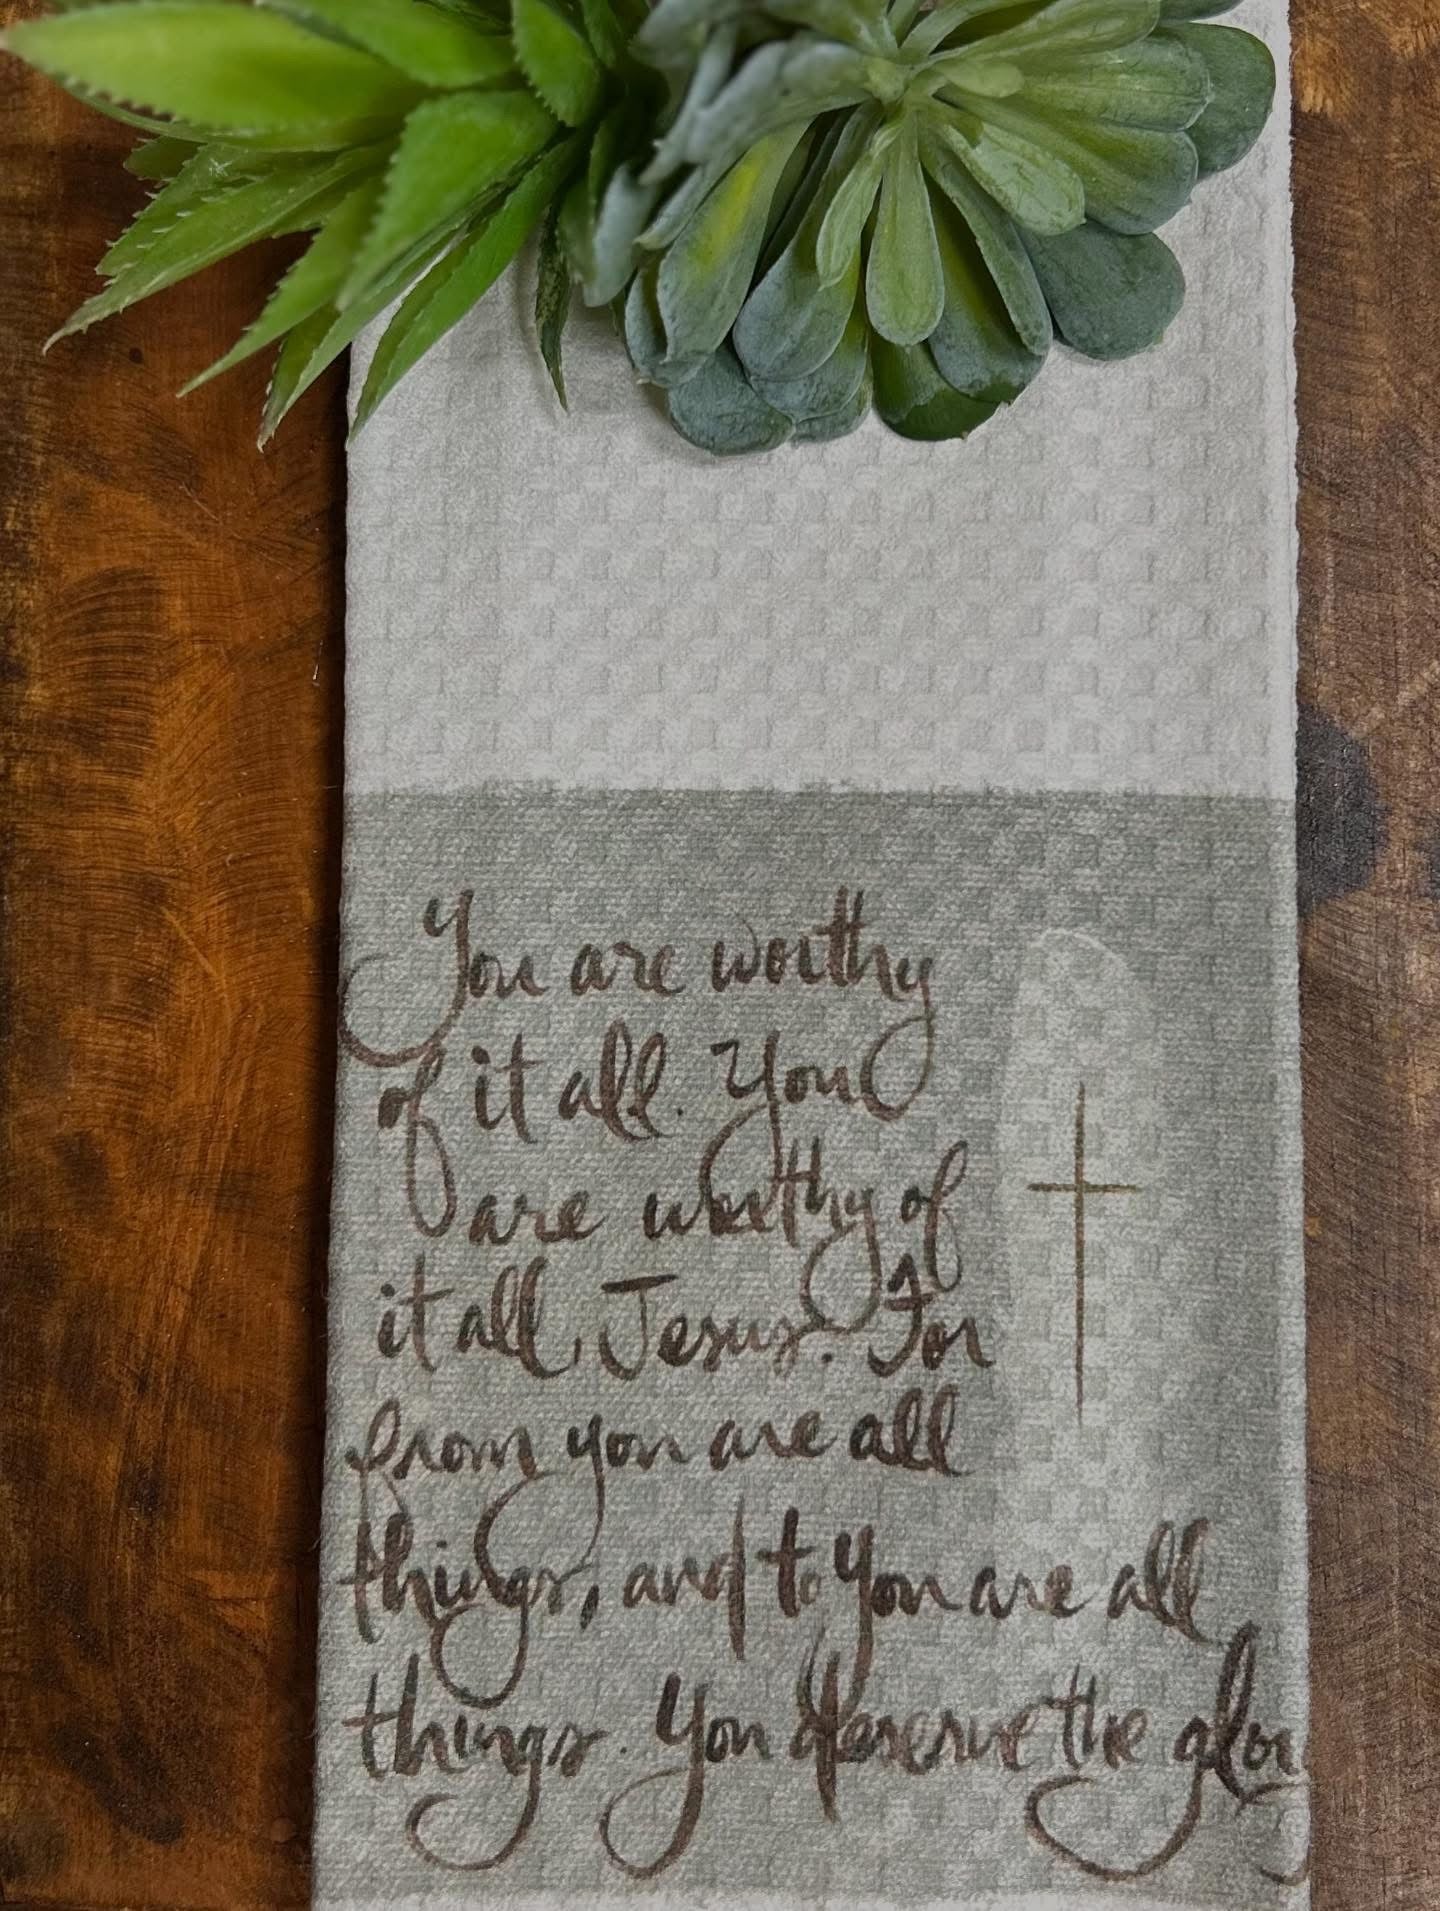 You are worthy
of it all. You
are worthy of
it all, Jesus. For
from you are all
things, and to you are all
things. You deserve the glory